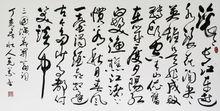 滚滚长江东
逝水浪花淘尽
英雄是非成败
转头空青山依旧
在几度夕阳红白发
渔樵江渚上
惯看秋月春风一
壶浊酒喜相逢
古今多少事都付
笑谈中
三国演义开篇词
丁亥年